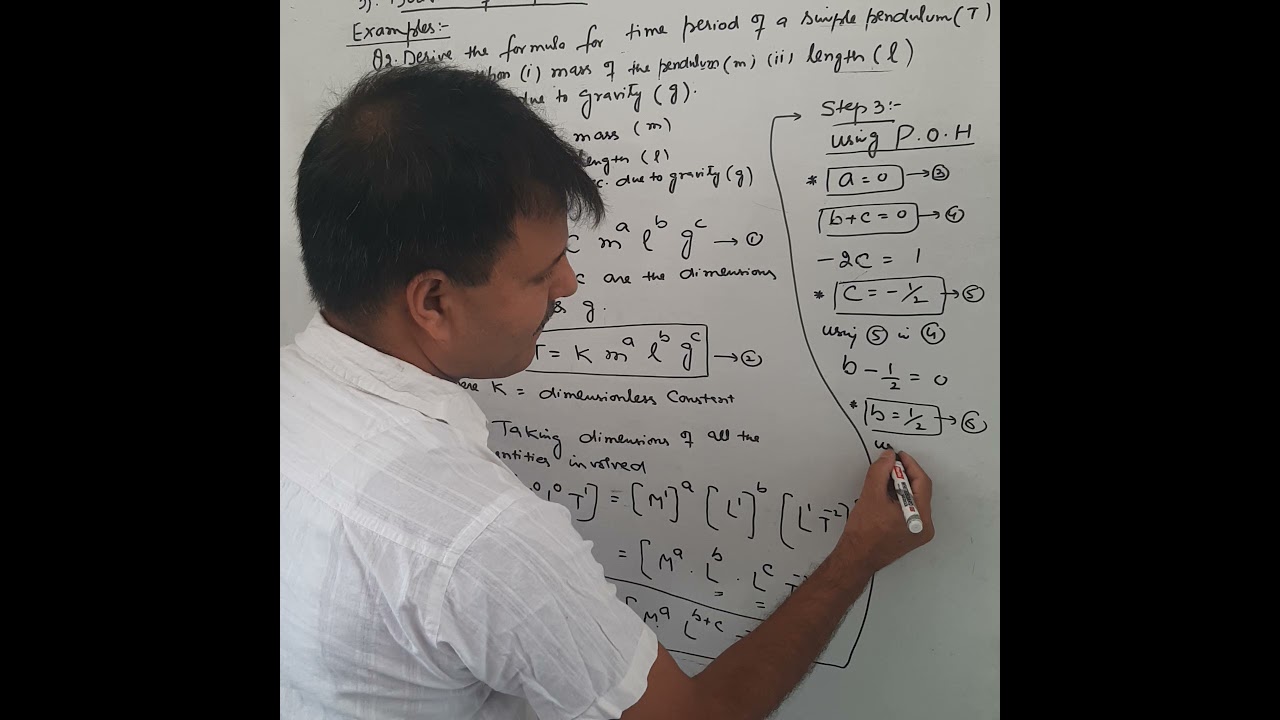 Examples:-
Q2. Derive the formula for time period of a simple pendulum (T)
(i) mass of the pendulum (m) (ii) length (l)
due to gravity (g).
mass (m)
length (l)
due to gravity (g)
m^a l^b g^c → ①
are the dimensions
g.
T = K m^a l^b g^c → ②
K = dimensionless Constant
Taking dimensions of all the
involved
L^0 T^1] = [M^1]^a [L^1]^b [L^1 T^-2]
= [M^a . L^b . L^c
M^a L^b+c
Step 3:-
using P.O.H
* a = 0 → ③
b + c = 0 → ④
-2c = 1
* c = -1/2 → ⑤
using ⑤ in ④
b - 1/2 = 0
* b = 1/2 → ⑥